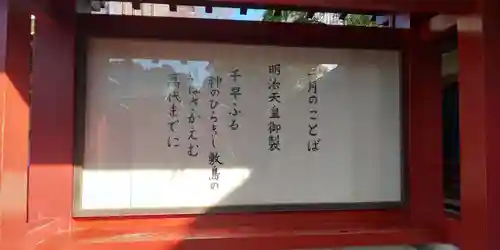 二月のことば
明治天皇御製
千早ふる
神のひらきし敷島の
道はさかえむ
萬代までに